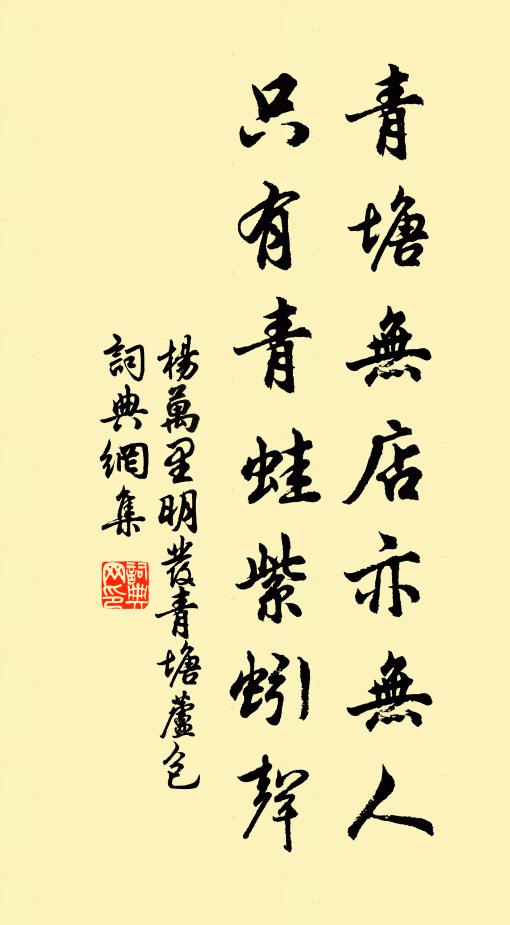 青塘無店亦無人
只有青蛙紫蚓聲
楊萬里明發青塘蘆包
詞典網集
詞典網印